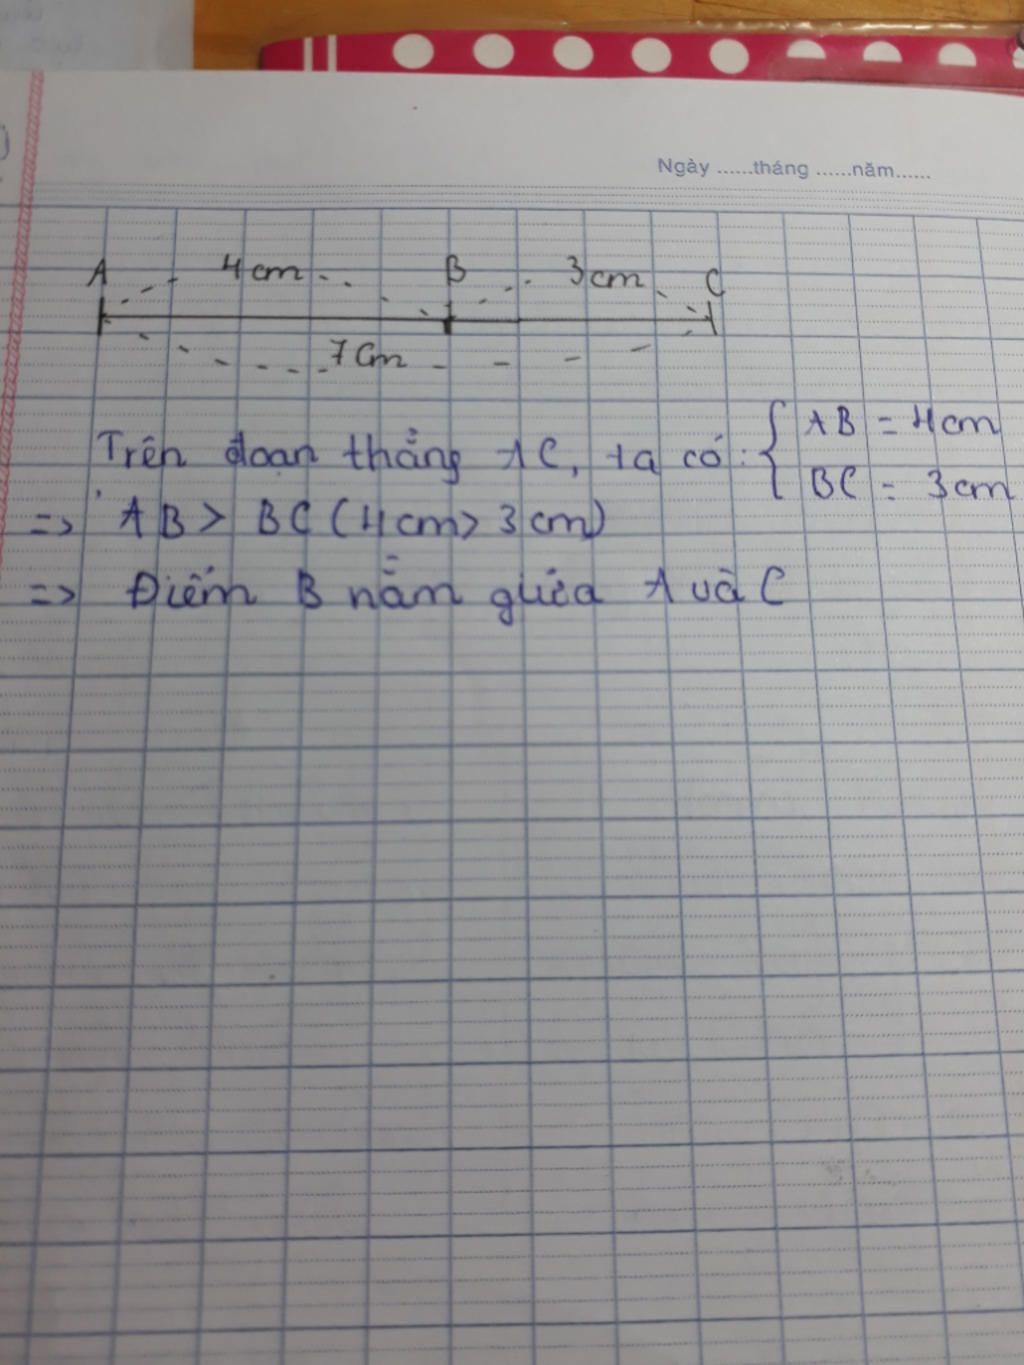 Ngày ......tháng ......năm......
A 4cm B 3cm C
7cm
Trên đoạn thẳng AC, ta có: { AB = 4cm
BC = 3cm
=> AB > BC (4cm > 3cm)
=> Điểm B nằm giữa A và C